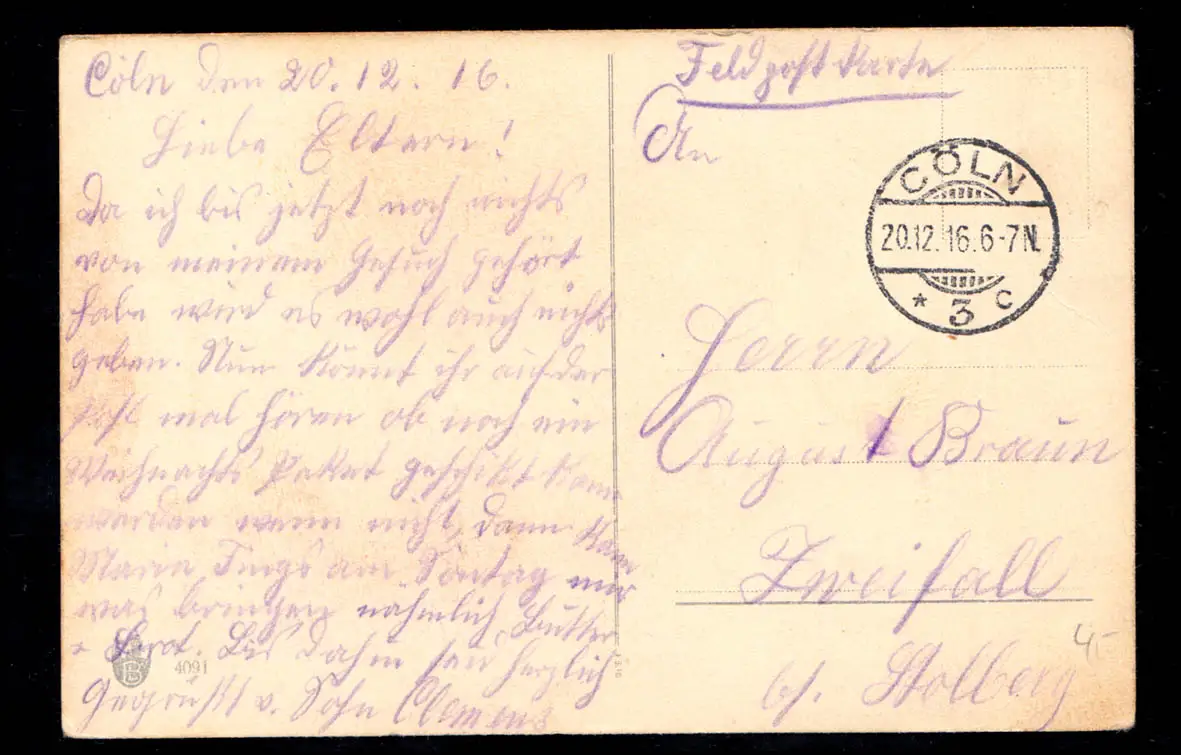 Cöln den 20.12.16.
Liebe Eltern!
Da ich bis jetzt noch nichts
von meinem Gesuch gehört
habe wird es wohl auch nichts
geben. Nun könnt ihr auf der
Post mal hören ob noch ein
Weihnachts Paket geschikt kann
werden wenn nicht, dann kann
Maria Fings am Sontag mir
was bringen nähmlich Butter
u Brot. Bis dahin seid herzlich
Gegrüsst v. Sohn Clemens
4091
Feldpostkarte
An
CÖLN
20.12.16.6-7N.
* 3 c
Herrn
August Braun
Zweifall
b/. Stolberg
4,-